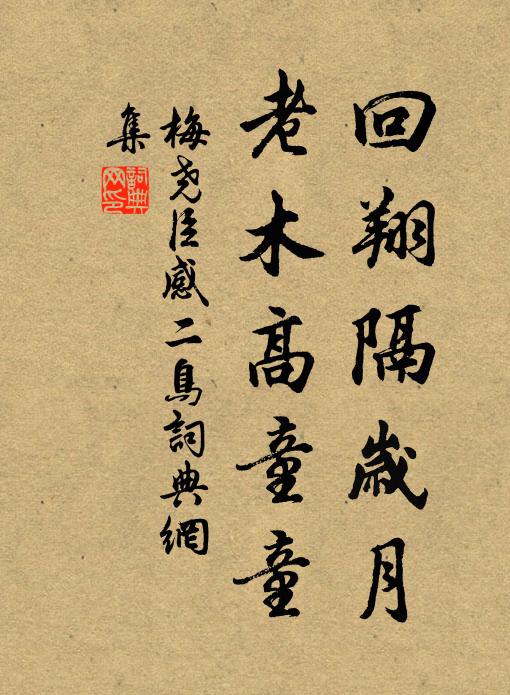 回翔隔歲月
老木高童童
梅堯臣感二鳥詞典網
集
詞典网印